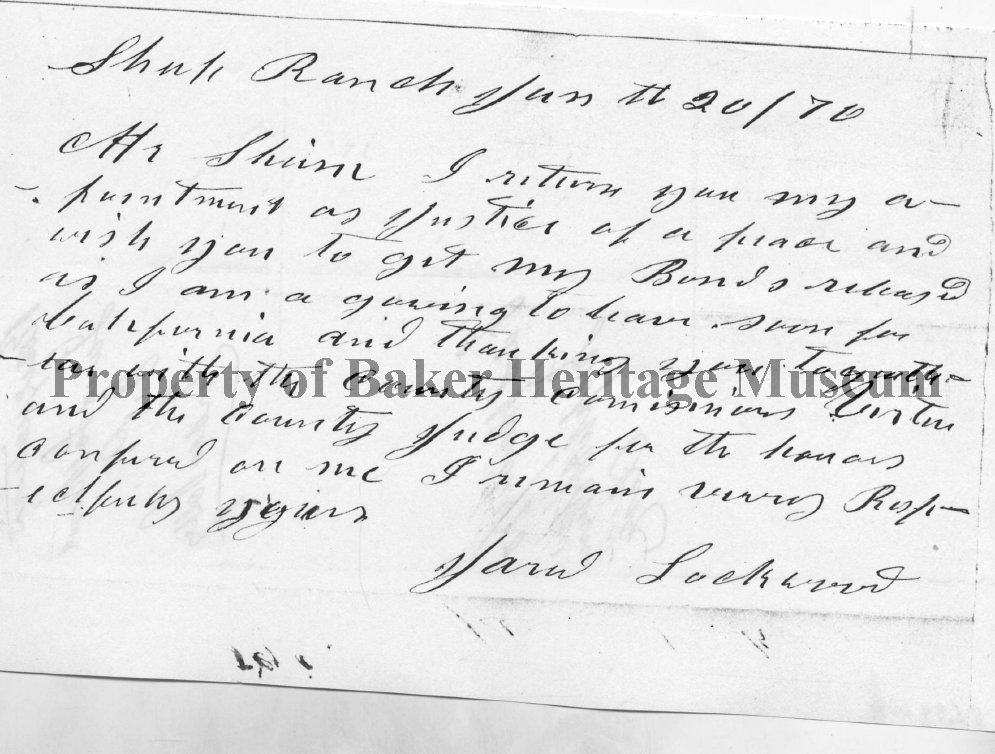 Shup Ranch Jan th 20/70
Mr Shinn I return you my a-
-pointment as Justice of a peace and
wish you to get my Bonds released
as I am a gowing to leave soon for
California and thanking you togeth-
-er with the County Comisinors
and the County Judge for the honors
Confured on me I remain verry Resp-
-ectfully yours
Jared Lockwood
Property of Baker Heritage Museum